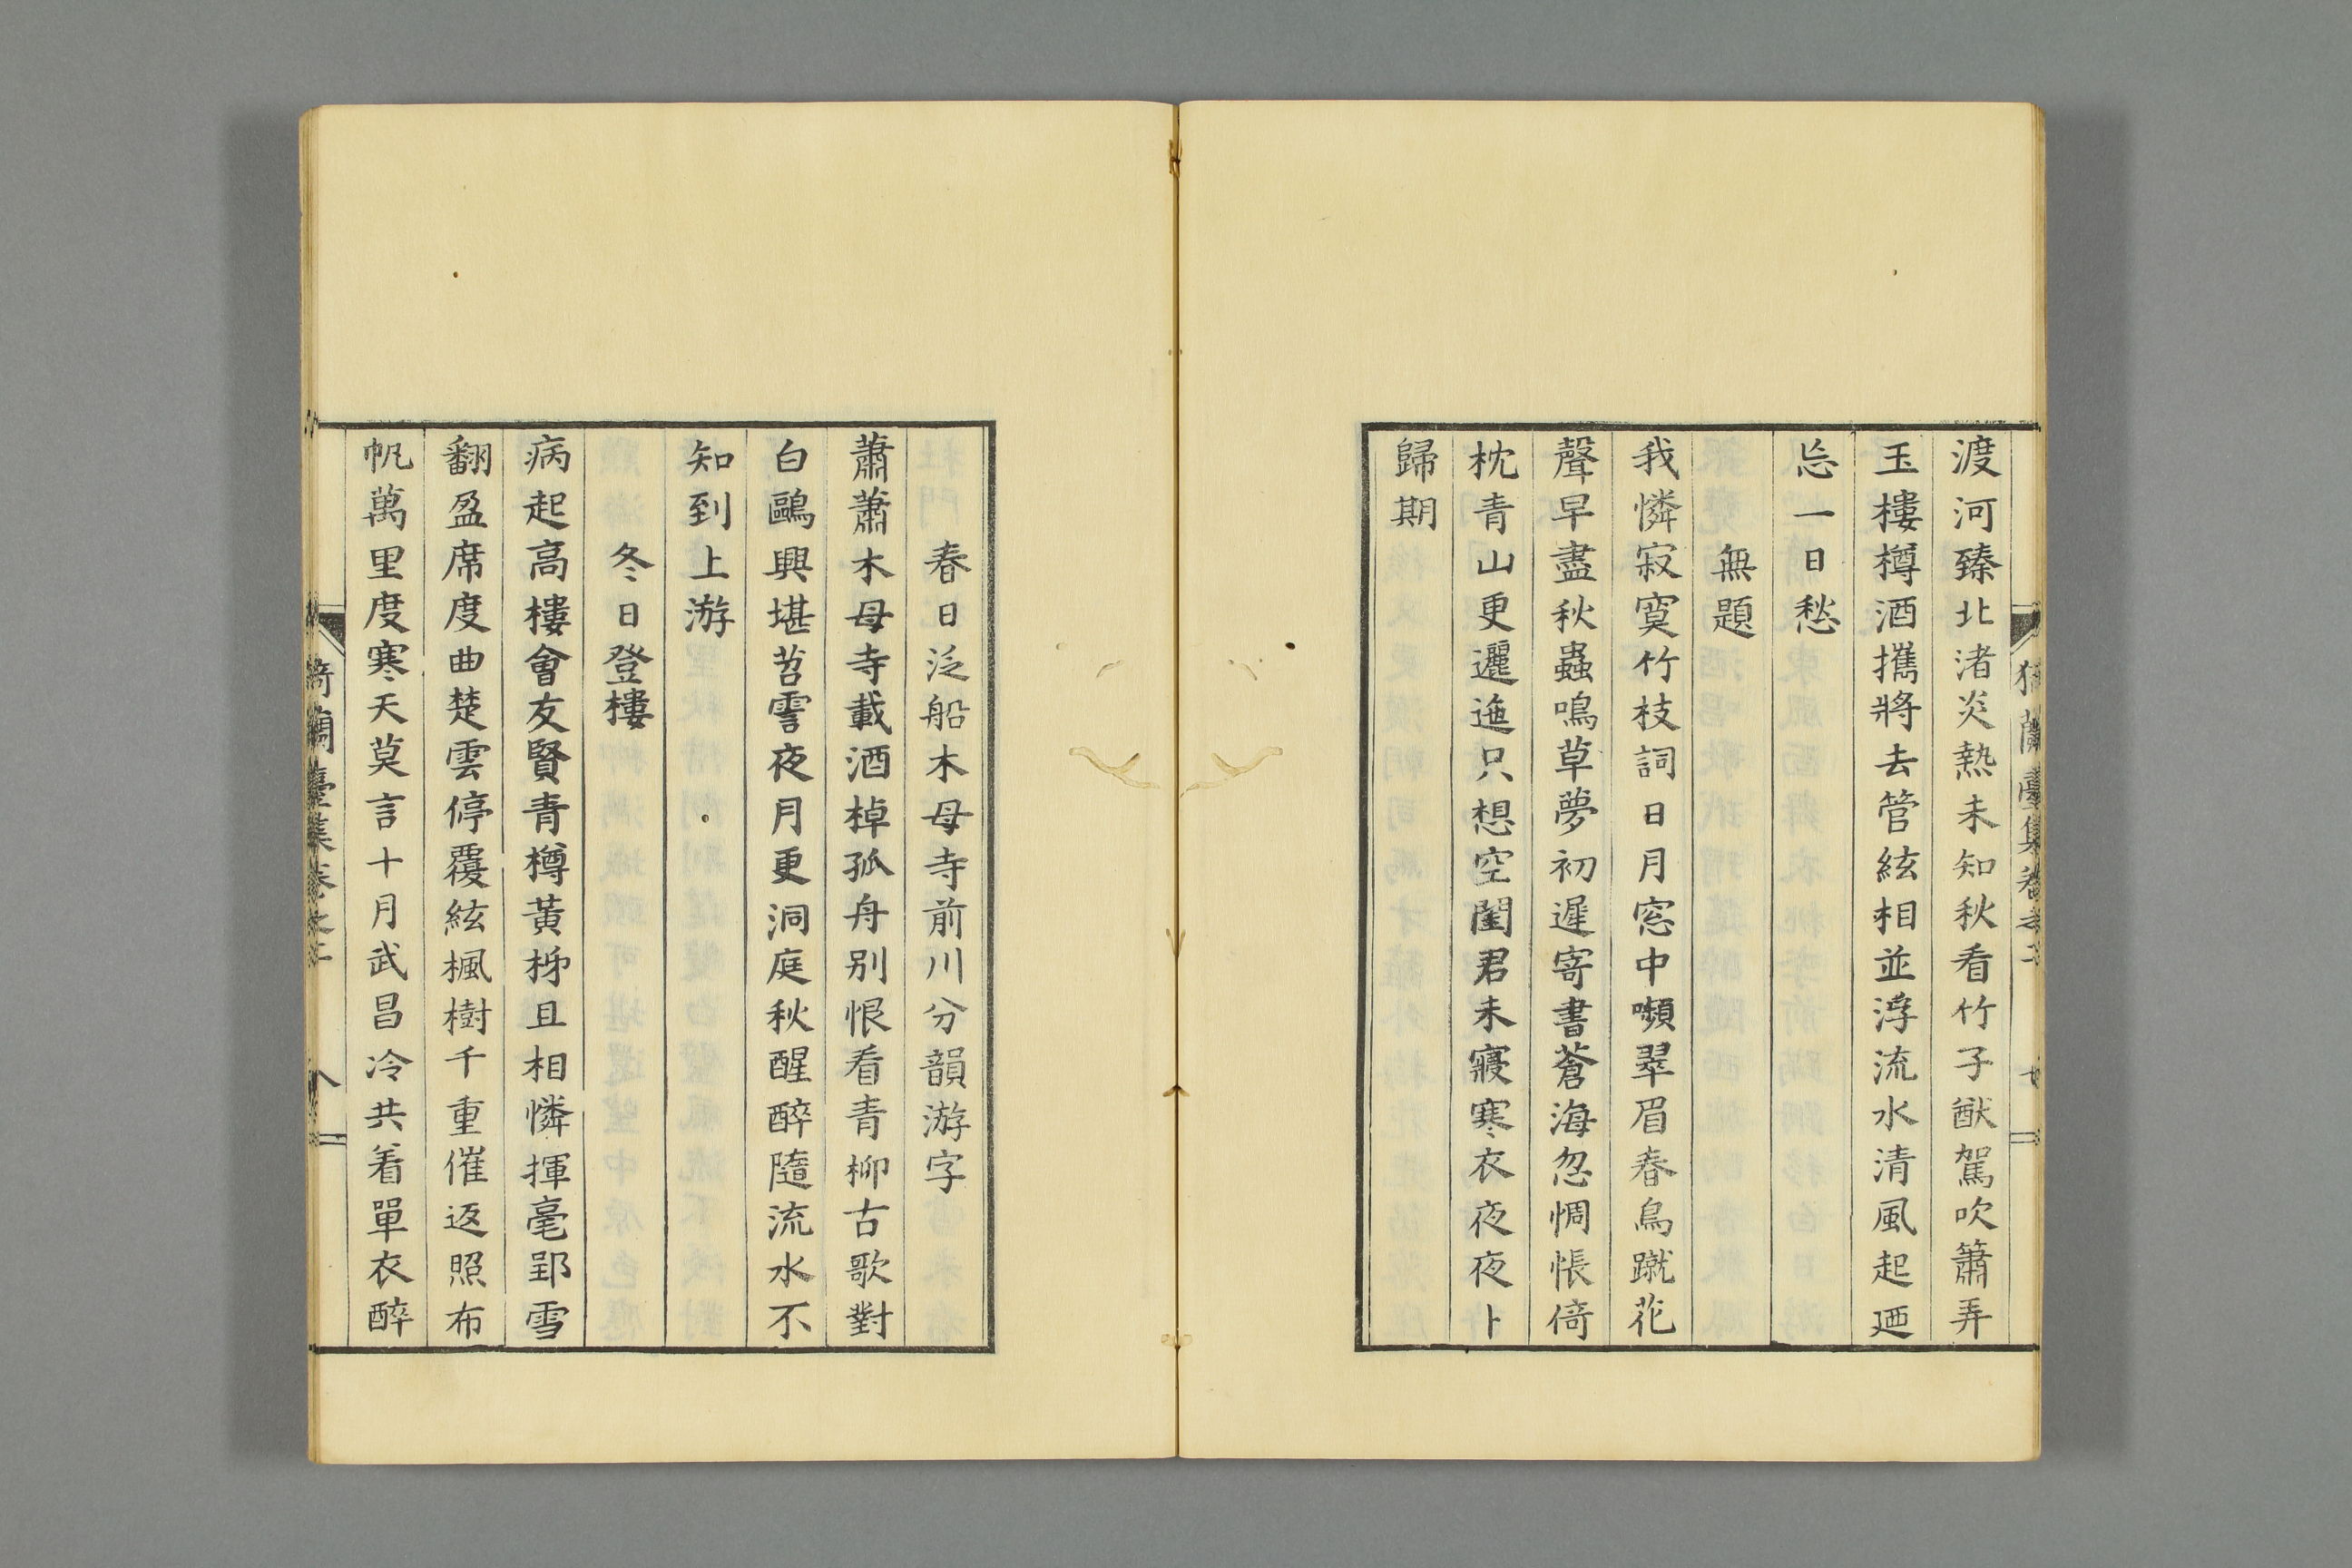 渡河臻北渚炎熱未知秋看竹子猷駕吹簫弄
玉樓樽酒攜將去管絃相並浮流水清風起迺
忘一日愁
無題
我憐寂寞竹枝詞日月窓中嚬翠眉春鳥蹴花
聲早盡秋蟲鳴草夢初遲寄書蒼海忽惆悵倚
枕青山更邐迤只想空閨君未寢寒衣夜夜卜
歸期
春日泛船木母寺前川分韻游字
蕭蕭木母寺載酒棹孤舟別恨看青柳古歌對
白鷗興堪苕霅夜月更洞庭秋醒醉隨流水不
知到上游
冬日登樓
病起高樓會友賢青樽黃柹且相憐揮毫郢雪
翻盈席度曲楚雲停覆絃楓樹千重催返照布
帆萬里度寒天莫言十月武昌冷共着單衣醉
猗蘭臺集卷之二 八